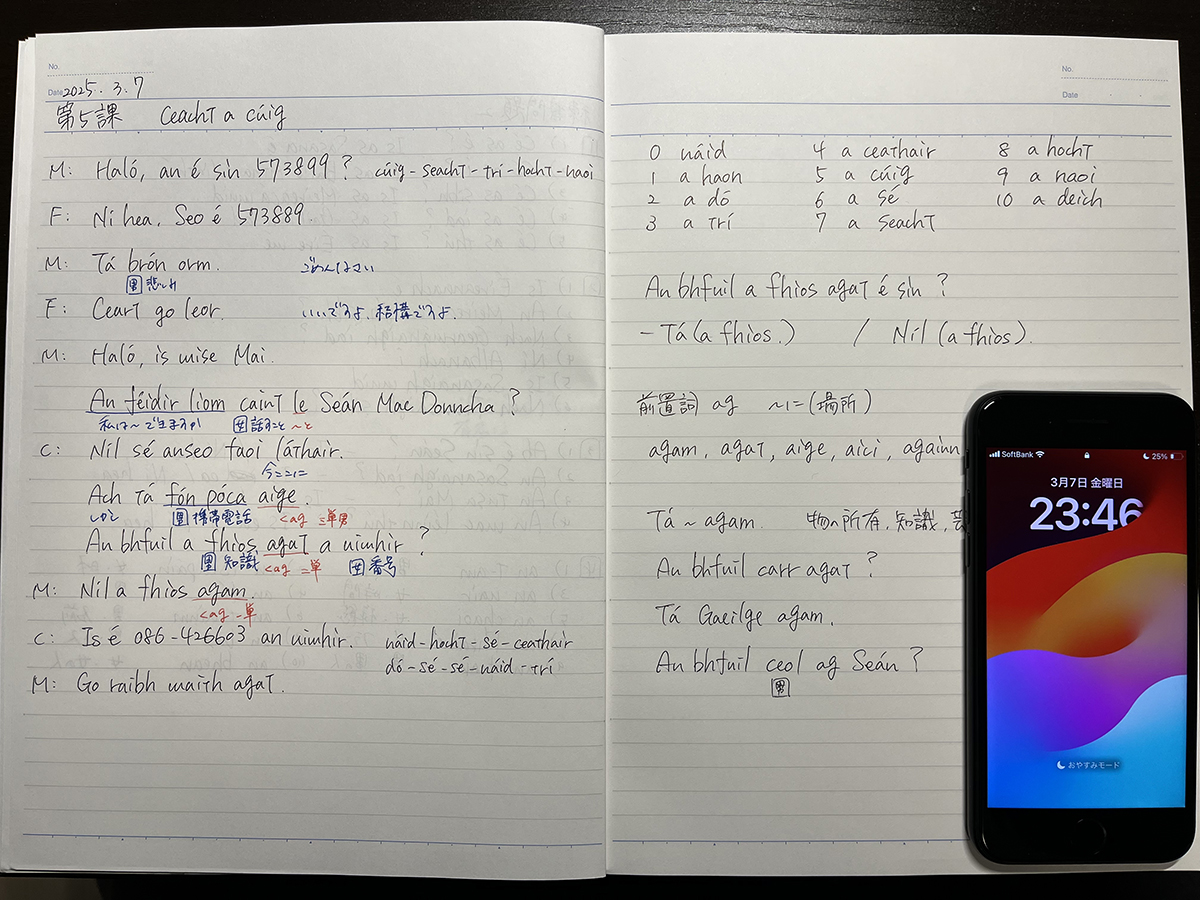 No.
Date 2025.3.7
第5課 Ceacht a cúig
M: Haló, an é sin 573899? cúig-seacht-trí-hocht-naoi
F: Ní hea, Seo é 573889.
M: Tá brón orm. ごめんなさい
男 悲しみ
F: Ceart go leor. いいですよ、結構ですよ.
M: Haló, is mise Mai.
An féidir liom caint le Seán Mac Donncha?
私は〜できますか 女 話すこと 〜と
C: Níl sé anseo faoi láthair.
今ここに
Ach tá fón póca aige.
しかし 男 携帯電話 <ag 三単男
An bhfuil a fhios agat a uimhir?
男 知識 <ag 二単 女 番号
M: Níl a fhios agam.
<ag 一単
C: Is é 086-426603 an uimhir. náid-hocht-sé-ceathair
dó-sé-sé-náid-trí
M: Go raibh maith agat.
No.
Date
0 náid 4 a ceathair 8 a hocht
1 a haon 5 a cúig 9 a naoi
2 a dó 6 a sé 10 a deich
3 a trí 7 a seacht
An bhfuil a fhios agat é sin?
- Tá (a fhios.) / Níl (a fhios).
前置詞 ag 〜に(場所)
agam, agat, aige, aici, againn
Tá ~ agam. 物の所有, 知識,
An bhfuil carr agat?
Tá Gaeilge agam.
An bhfuil ceol ag Seán?
男
SoftBank 25%
3月7日 金曜日
23:46
おやすみモード